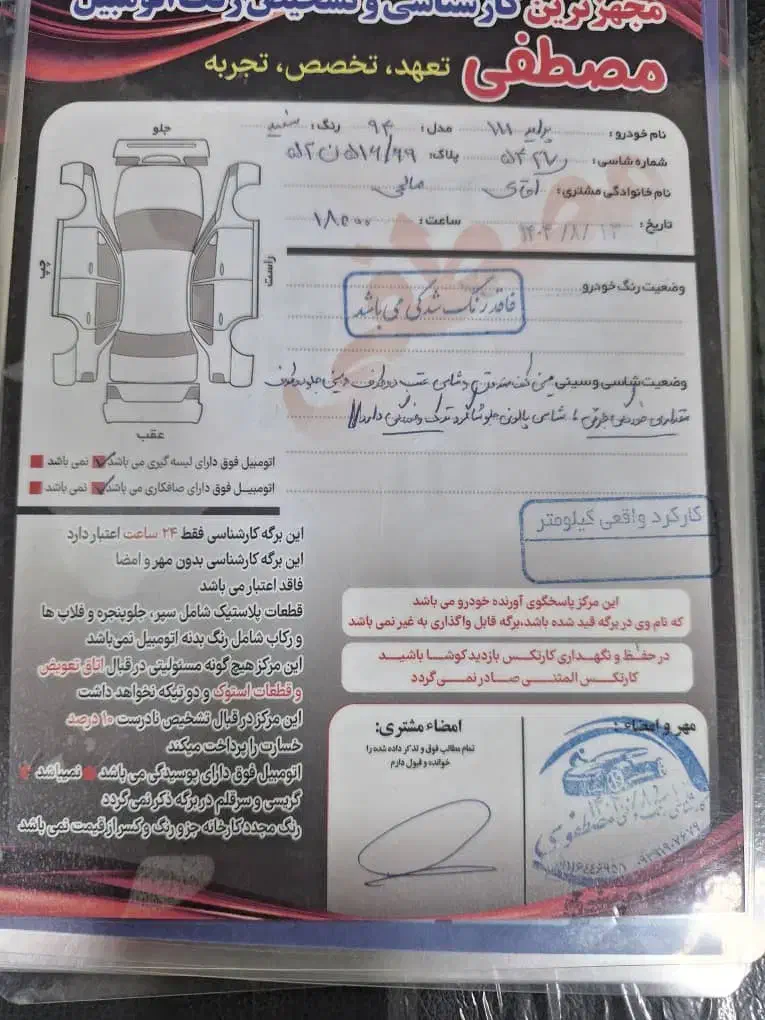 مجهزترین کارشناسی و تشخیص رنگ اتومبیل
مصطفی تعهد، تخصص، تجربه
نام خودرو: پراید ۱۱۱ مدل: ۹۴ رنگ: سفید
شماره شاسی: پلاک:
نام خانوادگی مشتری: آقای صالحی
تاریخ: ۱۴۰۴/۸/۱۳ ساعت: ۱۸:۰۰
جلو
راست
چپ
عقب
وضعیت رنگ خودرو:
فاقد رنگ شدگی می باشد
وضعیت شاسی و سینی: سینی کف صندوق و شاسی عقب دو طرف و سینی جلو دو طرف
مقداری خوردگی جزئی / شاسی پالونی جلو شاگرد ترک دارد
اتومبیل فوق دارای لیسه گیری می باشد نمی باشد
اتومبیل فوق دارای صافکاری می باشد نمی باشد
کارکرد واقعی کیلومتر
این برگه کارشناسی فقط ۲۴ ساعت اعتبار دارد
این برگه کارشناسی بدون مهر و امضا
فاقد اعتبار می باشد
قطعات پلاستیک شامل سپر، جلوپنجره و قلاب ها
و رکاب شامل رنگ بدنه اتومبیل نمی‌باشد
این مرکز هیچ گونه مسئولیتی در قبال اتاق تعویض
و قطعات استوک و دو تیکه نخواهد داشت
این مرکز در قبال تشخیص نادرست ۱۰ درصد
خسارت را پرداخت میکند
اتومبیل فوق دارای پوسیدگی می باشد نمیباشد
گریسی و سرقلم در برگه ذکر نمی گردد
رنگ مجدد کارخانه جزو رنگ و کسر از قیمت نمی باشد
این مرکز پاسخگوی آورنده خودرو می باشد
که نام وی در برگه قید شده باشد، برگه قابل واگذاری به غیر نمی باشد
در حفظ و نگهداری کارتکس بازدید کوشا باشید
کارتکس المثنی صادر نمی گردد
امضاء مشتری:
تمام مطالب فوق و تذکر داده شده را
خوانده و قبول دارم
مهر و امضاء: